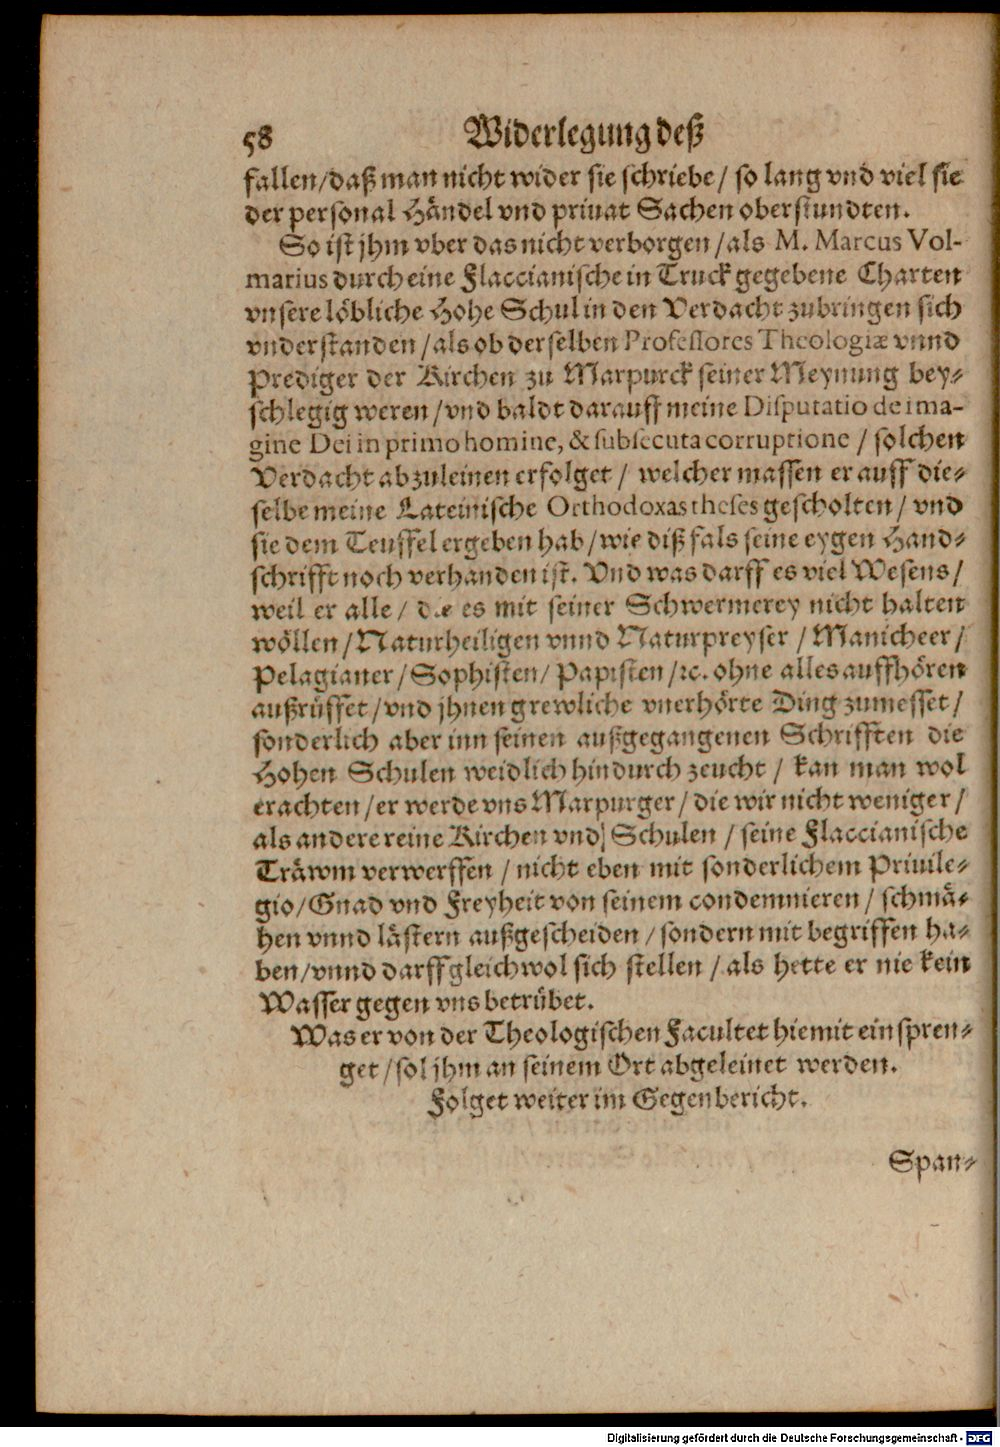 58 Widerlegung deß
fallen/daß man nicht wider sie schriebe/ so lang vnd viel sie
der personal Händel vnd priuat Sachen oberstundten.
So ist jhm vber das nicht verborgen/als M. Marcus Vol-
marius durch eine Flaccianische in Truck gegebene Charten
vnsere löbliche Hohe Schul in den Verdacht zubringen sich
vnderstanden/als ob derselben Professores Theologiæ vnnd
Prediger der Kirchen zu Marpurck seiner Meynung bey-
schlegig weren/vnd baldt darauff meine Disputatio de ima-
gine Dei in primo homine, & subsecuta corruptione / solchen
Verdacht abzuleinen erfolget / welcher massen er auff die-
selbe meine Lateinische Orthodoxas theses gescholten/ vnd
sie dem Teuffel ergeben hab/wie diß fals seine eygen Hand-
schrifft noch verhanden ist. Vnd was darff es viel Wesens/
weil er alle/ die es mit seiner Schwermerey nicht halten
wöllen/Naturheiligen vnnd Naturpreyser/Manicheer/
Pelagianer/Sophisten/ Papisten/ꝛc. ohne alles auffhören
außrüffet/vnd jhnen grewliche vnerhörte Ding zumesset/
sonderlich aber inn seinen außgegangenen Schrifften die
Hohen Schulen weidlich hindurch zeucht/ kan man wol
erachten/er werde vns Marpurger/ die wir nicht weniger/
als andere reine Kirchen vnd Schulen / seine Flaccianische
Träwm verwerffen / nicht eben mit sonderlichem Priuile-
gio/Gnad vnd Freyheit von seinem condemnieren/ schmä-
hen vnnd lästern außgescheiden/sondern mit begriffen ha-
ben/vnnd darff gleichwol sich stellen/als hette er nie kein
Wasser gegen vns betrübet.
Was er von der Theologischen Facultet hiemit einspren-
get/sol jhm an seinem Ort abgeleinet werden.
Folget weiter im Gegenbericht.
Span-
Digitalisierung gefördert durch die Deutsche Forschungsgemeinschaft - DFG